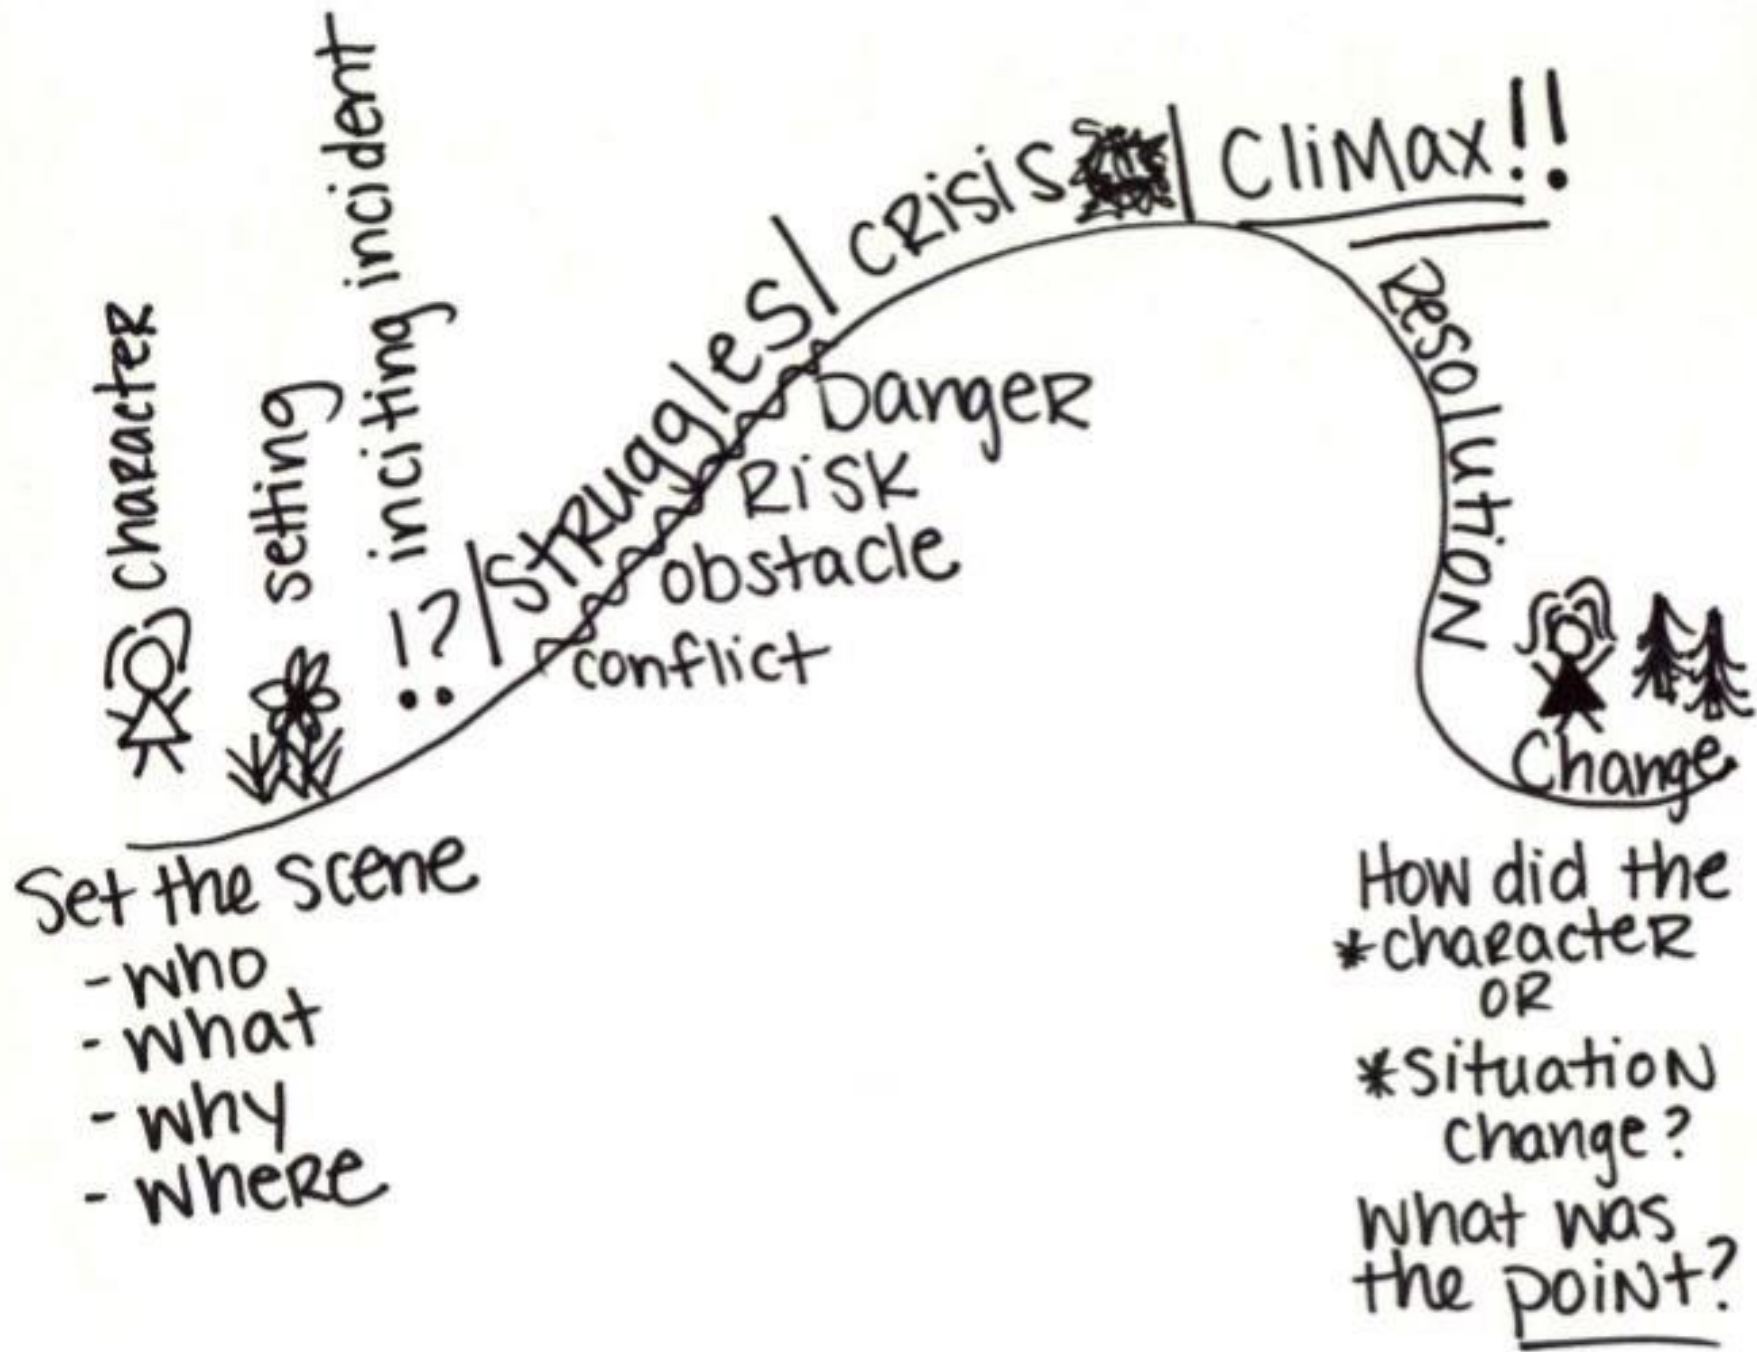 Character
setting
inciting incident
!?
Struggles
Crisis
Climax!!
Danger
Risk
obstacle
conflict
Resolution
Change
Set the scene
- who
- what
- why
- where
How did the
*character
OR
*situation
change?
What was
the point?